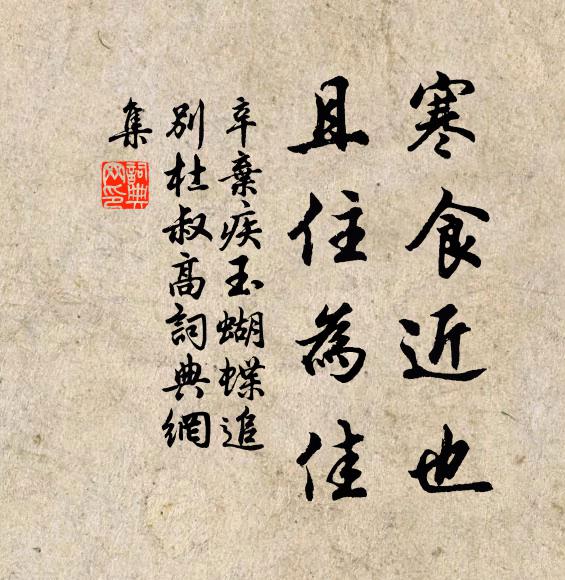 寒食近也
且住為佳
辛棄疾玉蝴蝶追
別杜叔高詞典網
集
詞典
網印